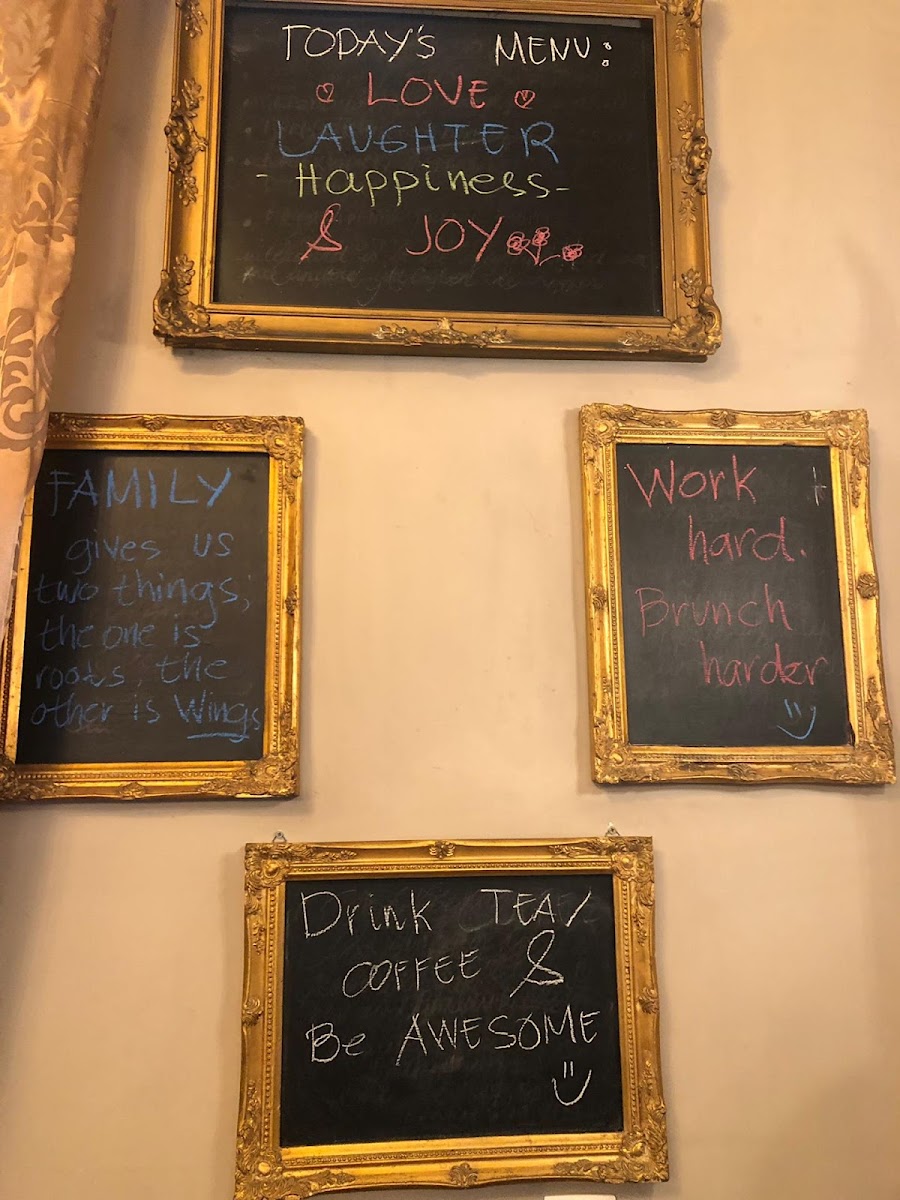 TODAY'S MENU:
LOVE
LAUGHTER
- Happiness -
& JOY
FAMILY
gives us
two things;
the one is
roots, the
other is Wings
Work
hard.
Brunch
harder
Drink TEA/
COFFEE &
Be AWESOME